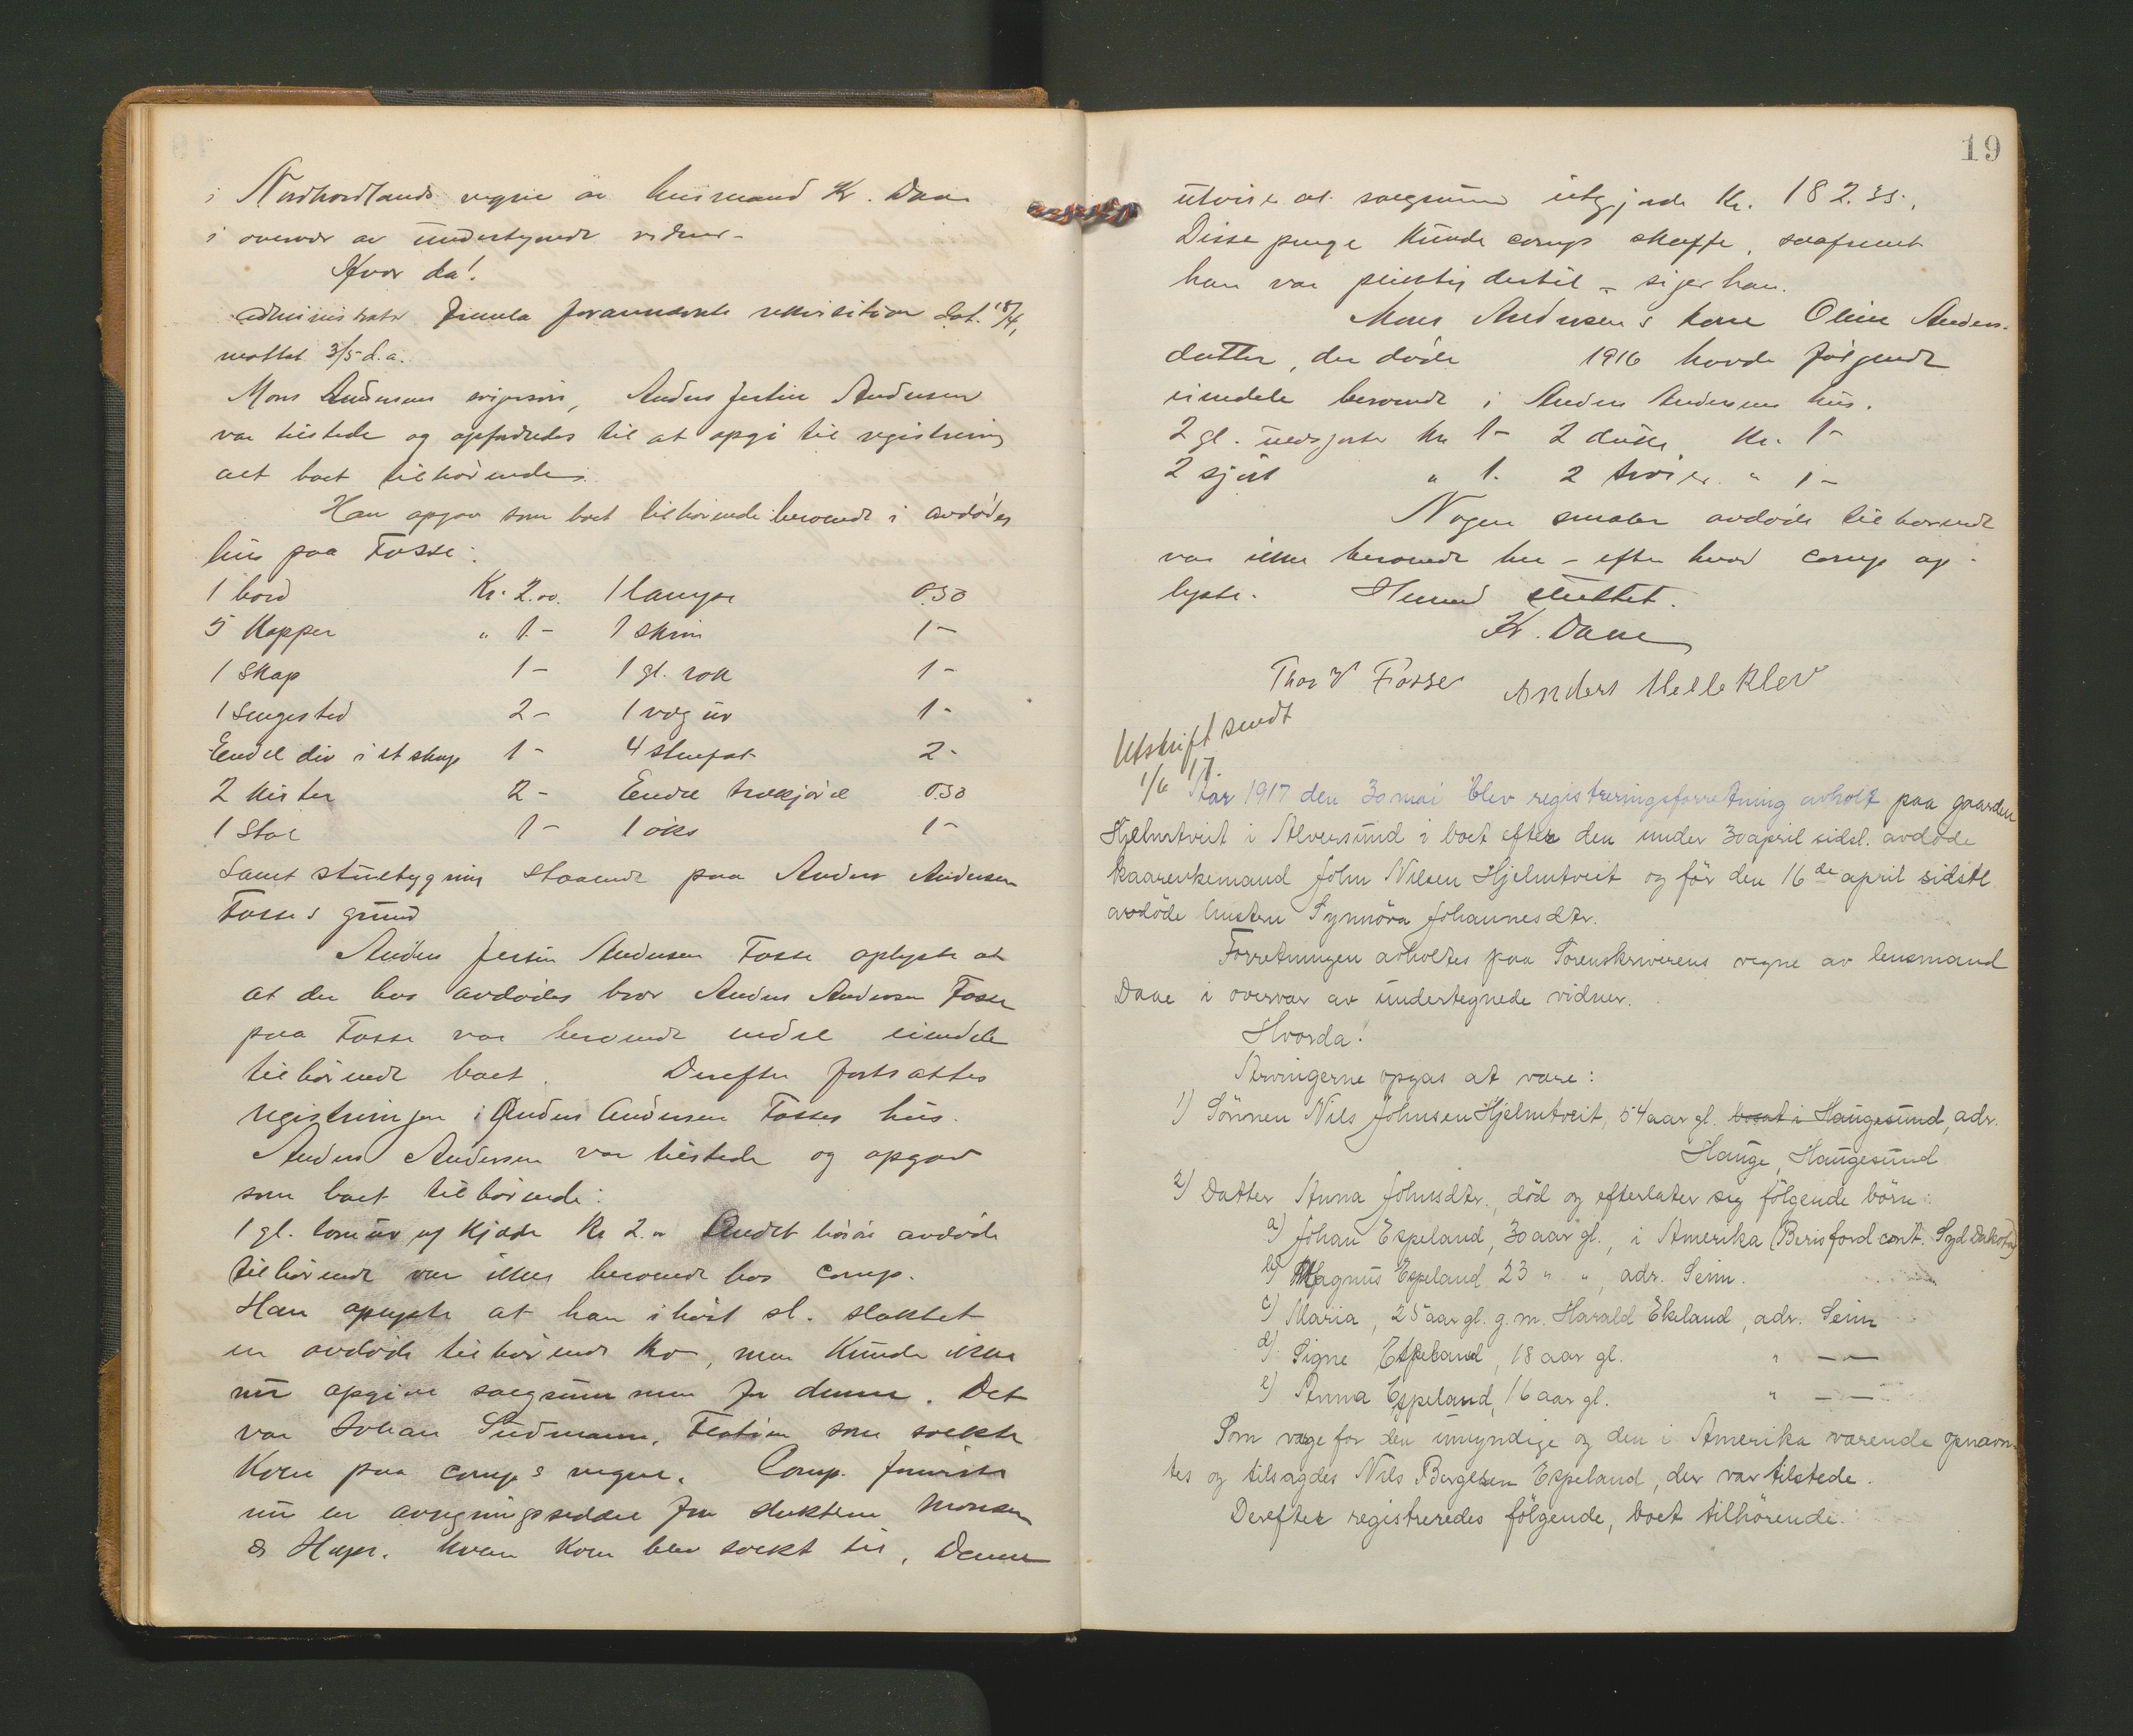 i Nordhordlands vegne av lensmand Kr. Daae
i overvær av undertegnede vidner -
Hvor da!
Administrator fremla forannævnte rekvisition dat. 18/4,
mottat 3/5 d.a.
Mons Andersens svigersøn, Anders Jertin Andersen
var tilstede og opfordredes til at opgi til registrering
alt boet tilhørende.
Han opgav som boet tilhørende beroende i avdødes
hus paa Fosse:
1 bord Kr. 2.00. 1 lampe 0.50
5 Kopper " 1.- 1 skrin 1-
1 Skap 1- 1 gl. rok 1-
1 Sengested 2- 1 væg ur 1-
Endel div i et skap 1- 4 stenfat 2-
2 Kister 2- Endel trækjørel 0.50
1 Stol 1- 1 øks 1-
Samt stuebygning staaende paa Anders Andersen
Fosses grund
Anders Jertin Andersen Fosse oplyste at
at der hos avdødes bror Anders Andersen Fosse
paa Fosse var beroende endel eiendele
tilhørende boet. Derefter fortsattes
registreringen i Anders Andersen Fosses hus.
Anders Andersen var tilstede og opgav
som boet tilhørende:
1 gl. lomeur og kjæde Kr 2.00 Andet løsøre avdøde
tilhørende var ikke beroende hos comp.
Han oplyste at han i høst sl. slaktet
en avdøde tilhørende ko, men kunde ikke
nu opgive salgsummen for denne. Det
var Johan Sudmann, Flatøen som solgte
Koen paa comp's vegne. Comp. foreviste
nu en avregningsseddel fra slakteren Monsen
& Hope. hvem Koen blev solgt til, Denne
19
utviser at salgsummen utgjorde Kr. 182.35.,
Disse penge kunde comp skaffe, saafremt
han var pliktig dertil - siger han.
Mons Andersens kone Oline Anders-
datter, der døde 1916 havde følgende
eiendele beroende i Anders Andersens hus.
2 gl. ulvskjorter Kr 1- 2 duker Kr. 1-
2 skjørt " 1. 2 trøier " 1-
Nogen smaler avdøde tilhørende
var ikke beroende her - efter hvad comp op-
lyste. Hermed sluttet.
Kr. Daae
Thor Fosse Anders Helleklev
Utskrift sendt
1/6 17.
Aar 1917 den 30 mai blev registreringsforretning avholt paa gaarden
Hjelmtveit i Alversund i boet efter den under 30 april sidsl. avdøde
kaarenkemand John Nilsen Hjelmtveit og før den 16de april sidstl
avdøde hustru Synnöva Johannesdtr.
Forretningen avholdes paa Sorenskriverens vegne av lensmand
Daae i overvær av undertegnede vidner.
Hvorda!
Arvingerne opgas at være:
1) Sønnen Nils Johnsen Hjelmtveit, 54 aar gl. bosat i Haugesund, adr.
Hauge, Haugesund
2) Datter Anna Johnsdtr., död og efterlater sig fölgende börn:
a) Johan Espeland, 30 aar gl., i Amerika (Berisford cont. Syd Dakota)
b) Magnus Espeland 23 " ", adr. Seim.
c) Maria, 25 aar gl. g.m. Harald Ekeland, adr. Seim
d) Signe Espeland, 18 aar gl. " —
e) Anna Espeland, 16 aar gl. " —
Som værge for den umyndige og den i Amerika værende opnævn-
tes og tilsagdes Nils Bergesen Espeland, der var tilstede.
Derefter registreredes fölgende, boet tilhörende: